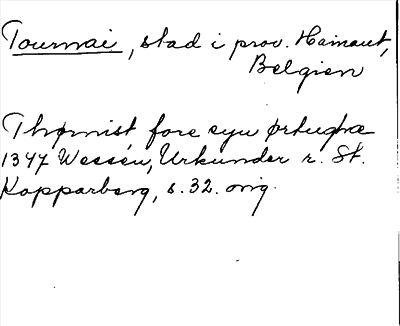 Tournai, stad i prov. Hainaut,
Belgien
Thørnist fore syu ørtughæ
1347 Wessén, Urkunder r. St.
Kopparberg, s. 32. orig.